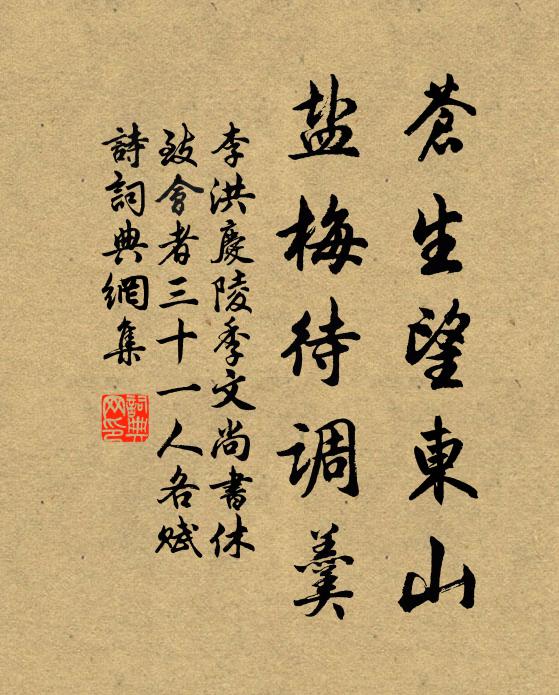 蒼生望東山
盐梅待调羹
李洪慶陵季文尚書休
致會者三十一人名赋
詩詞典網集
詞典
网印